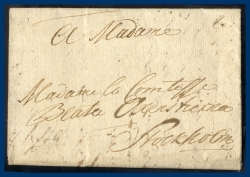 A Madame
Madame la Comtesse
Beata
Stockholm